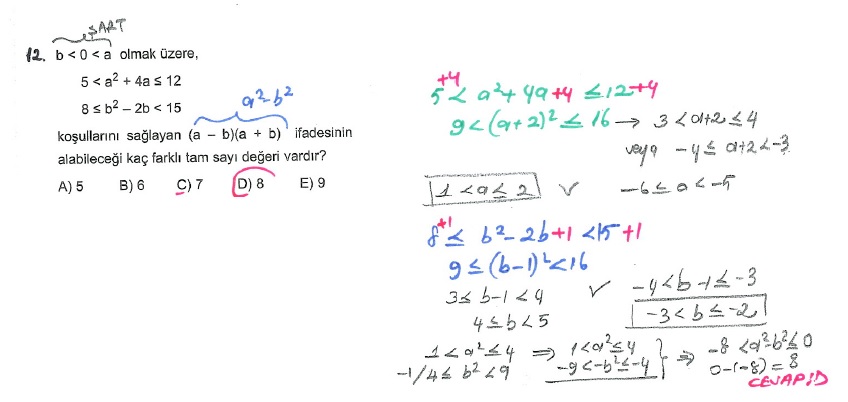 ŞART
12. b < 0 < a olmak üzere,
5 < a² + 4a ≤ 12
8 ≤ b² – 2b < 15
a²-b²
koşullarını sağlayan (a – b)(a + b) ifadesinin
alabileceği kaç farklı tam sayı değeri vardır?
A) 5 B) 6 C) 7 D) 8 E) 9
+4
5 < a²+ 4a+4 ≤12+4
9 < (a+2)² ≤ 16 → 3 < a+2 ≤ 4
veya -4 ≤ a+2 < -3
1 < a ≤ 2 ✓ -6 ≤ a < -5
+1
8 ≤ b²-2b+1 <15+1
9 ≤ (b-1)² < 16
3 ≤ b-1 < 4 ✓ -4 < b-1 ≤ -3
4 ≤ b < 5 -3 < b ≤ -2
1 < a² ≤ 4 ⇒ 1 < a² ≤ 4
-1/4 ≤ b² < 9 -9 < -b² ≤ -4 ⇒ -8 < a²-b² ≤ 0
0-(-8) = 8
CEVAP:D